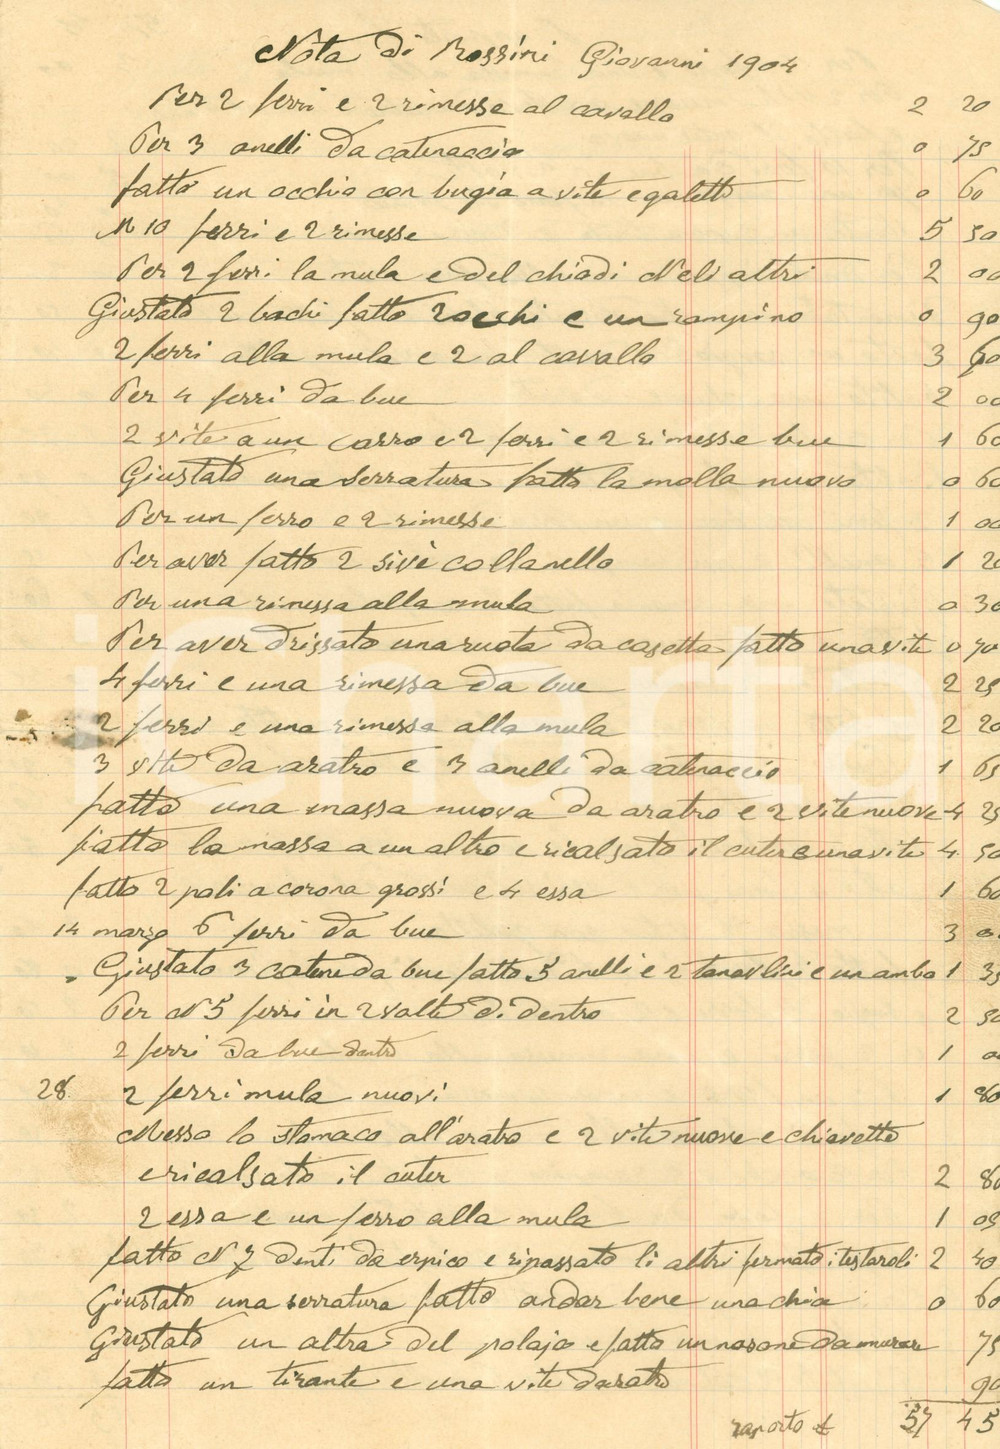 Nota di Rossini Giovanni 1904
Per 2 ferri e 2 rimesse al cavallo 2 20
Per 3 anelli da catenaccio 0 75
fatto un occhio con bugia a vite e galetto 0 60
N 10 ferri e 2 rimesse 5 50
Per 2 ferri la mula e del chiadi Neli altri 2 00
Giustato 2 bachi fatto 2 occhi e un rampino 0 90
2 ferri alla mula e 2 al cavallo 3 60
Per 4 ferri da bue 2 00
2 vite a un carro e 2 ferri e 2 rimesse bue 1 60
Giustato una serratura fatto la molla nuova 0 60
Per un ferro e 2 rimesse 1 00
Per aver fatto 2 sivè collanello 1 20
Per una rimessa alla mula 0 30
Per aver drissato una ruota da casetta fatto una vite 0 70
4 ferri e una rimessa da bue 2 25
2 ferri e una rimessa alla mula 2 20
3 vite da aratro e 3 anelli da catenaccio 1 65
fatto una massa nuova da aratro e 2 vite nuove 4 25
fatto la massa a un altro e ricalsato il cuter e una vite 4 50
fatto 2 pali a corona grossi e 4 essa 1 60
14 marzo 6 ferri da bue 3 0
Giustato 3 catene da bue fatto 5 anelli e 2 e un ambo 1 35
Per N 5 ferri in 2 volte di dentro 2 50
2 ferri da bue dentro 1 0
28 2 ferri mula nuovi 1 80
Messo lo stomaco all'aratro e 2 vite nuove e chiavetto
e ricalsato il cuter 2 80
2 essa e un ferro alla mula 1 05
fatto N 7 denti da erpico e ripassato li altri fermato i testaroli 2 30
Giustato una serratura fatto andar bene una chia 0 60
Giustato un altra del polajo e fatto un nasone da murare 75
fatto un tirante e una vite daratro 90
raporto £ 57 45